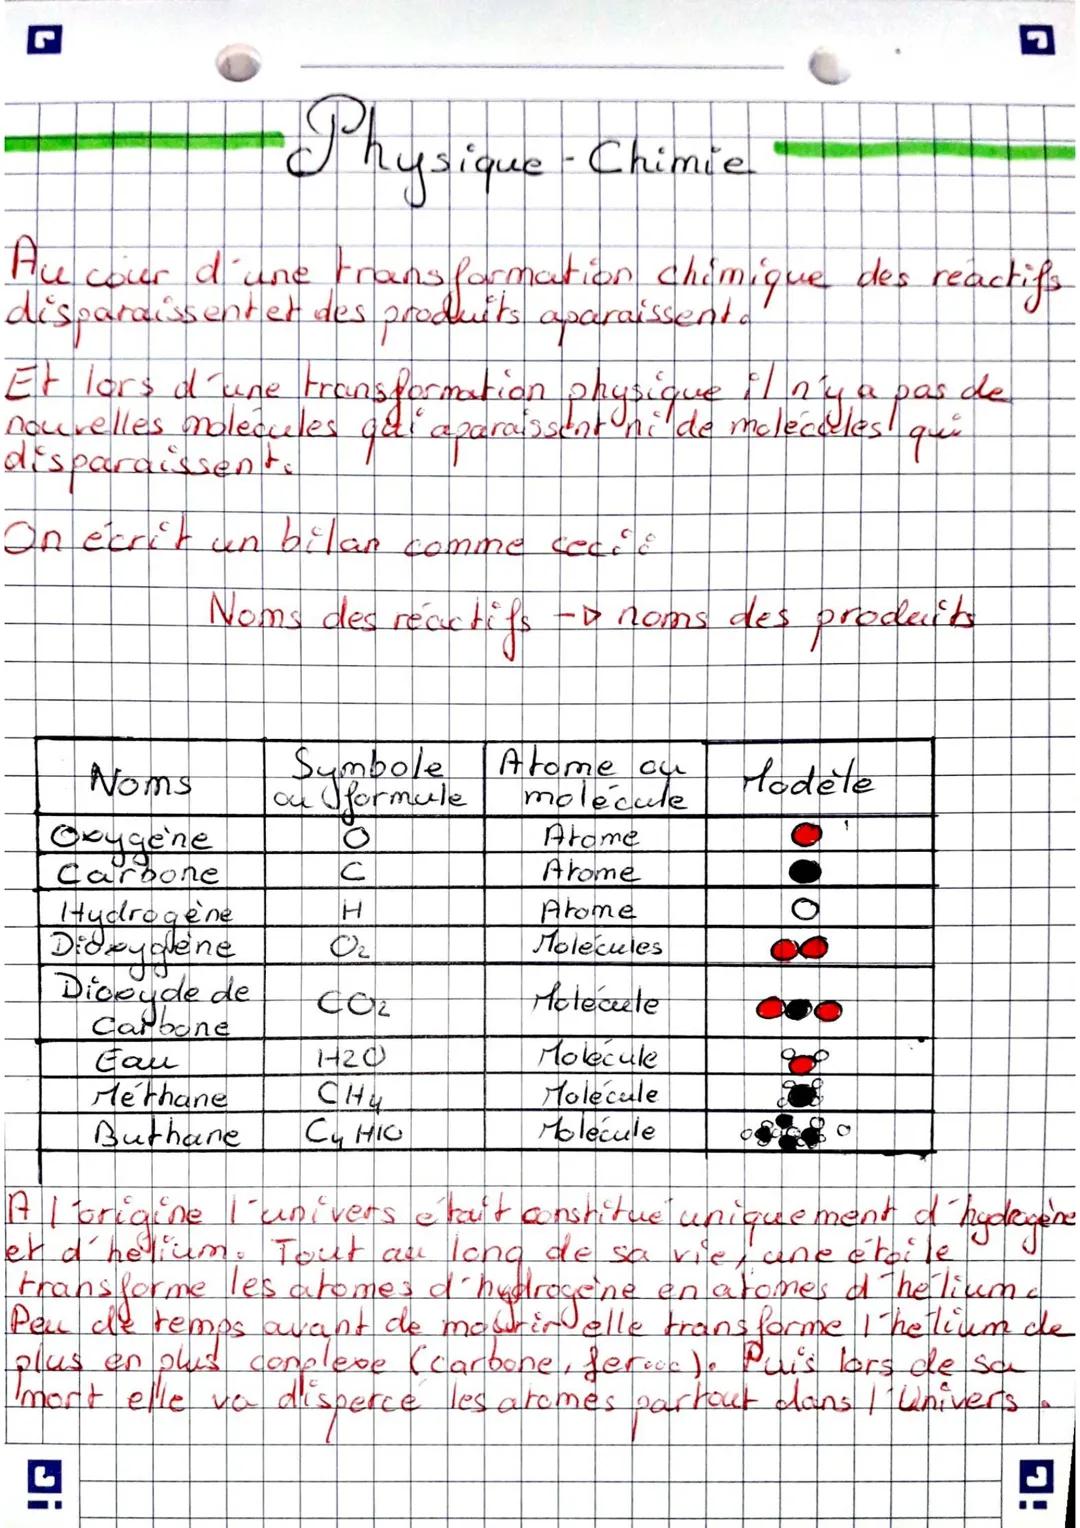 Physique-Chimie
Au cour d'une transformation chimique des réactifs
disparaissent et des produits aparaissent.
Et lors d'une transformation physique il n'y a pas de
nouvelles molécules qui aparaissent ni de molécules qui
disparaissent.
On écrit un bilan comme ceci:
Noms des réactifs -> noms des produits
Noms Symbole ou formule Atome ou molécule Modèle
Oxygène O Atome
Carbone C Atome
Hydrogène H Atome
Dioxygène O2 Molécules
Dioxyde de Carbone CO2 Molécule
Eau H2O Molécule
Méthane CH4 Molécule
Buthane C4H10 Molécule
A l'origine l'univers était constitué uniquement d'hydrogène
et d'hélium. Tout au long de sa vie, une étoile
transforme les atomes d'hydrogène en atomes d'hélium.
Peu de temps avant de mourir elle transforme l'hélium de
plus en plus conplexe (carbone, fer...). Puis lors de sa
mort elle va dispercé les atomes partout dans l'Univers.